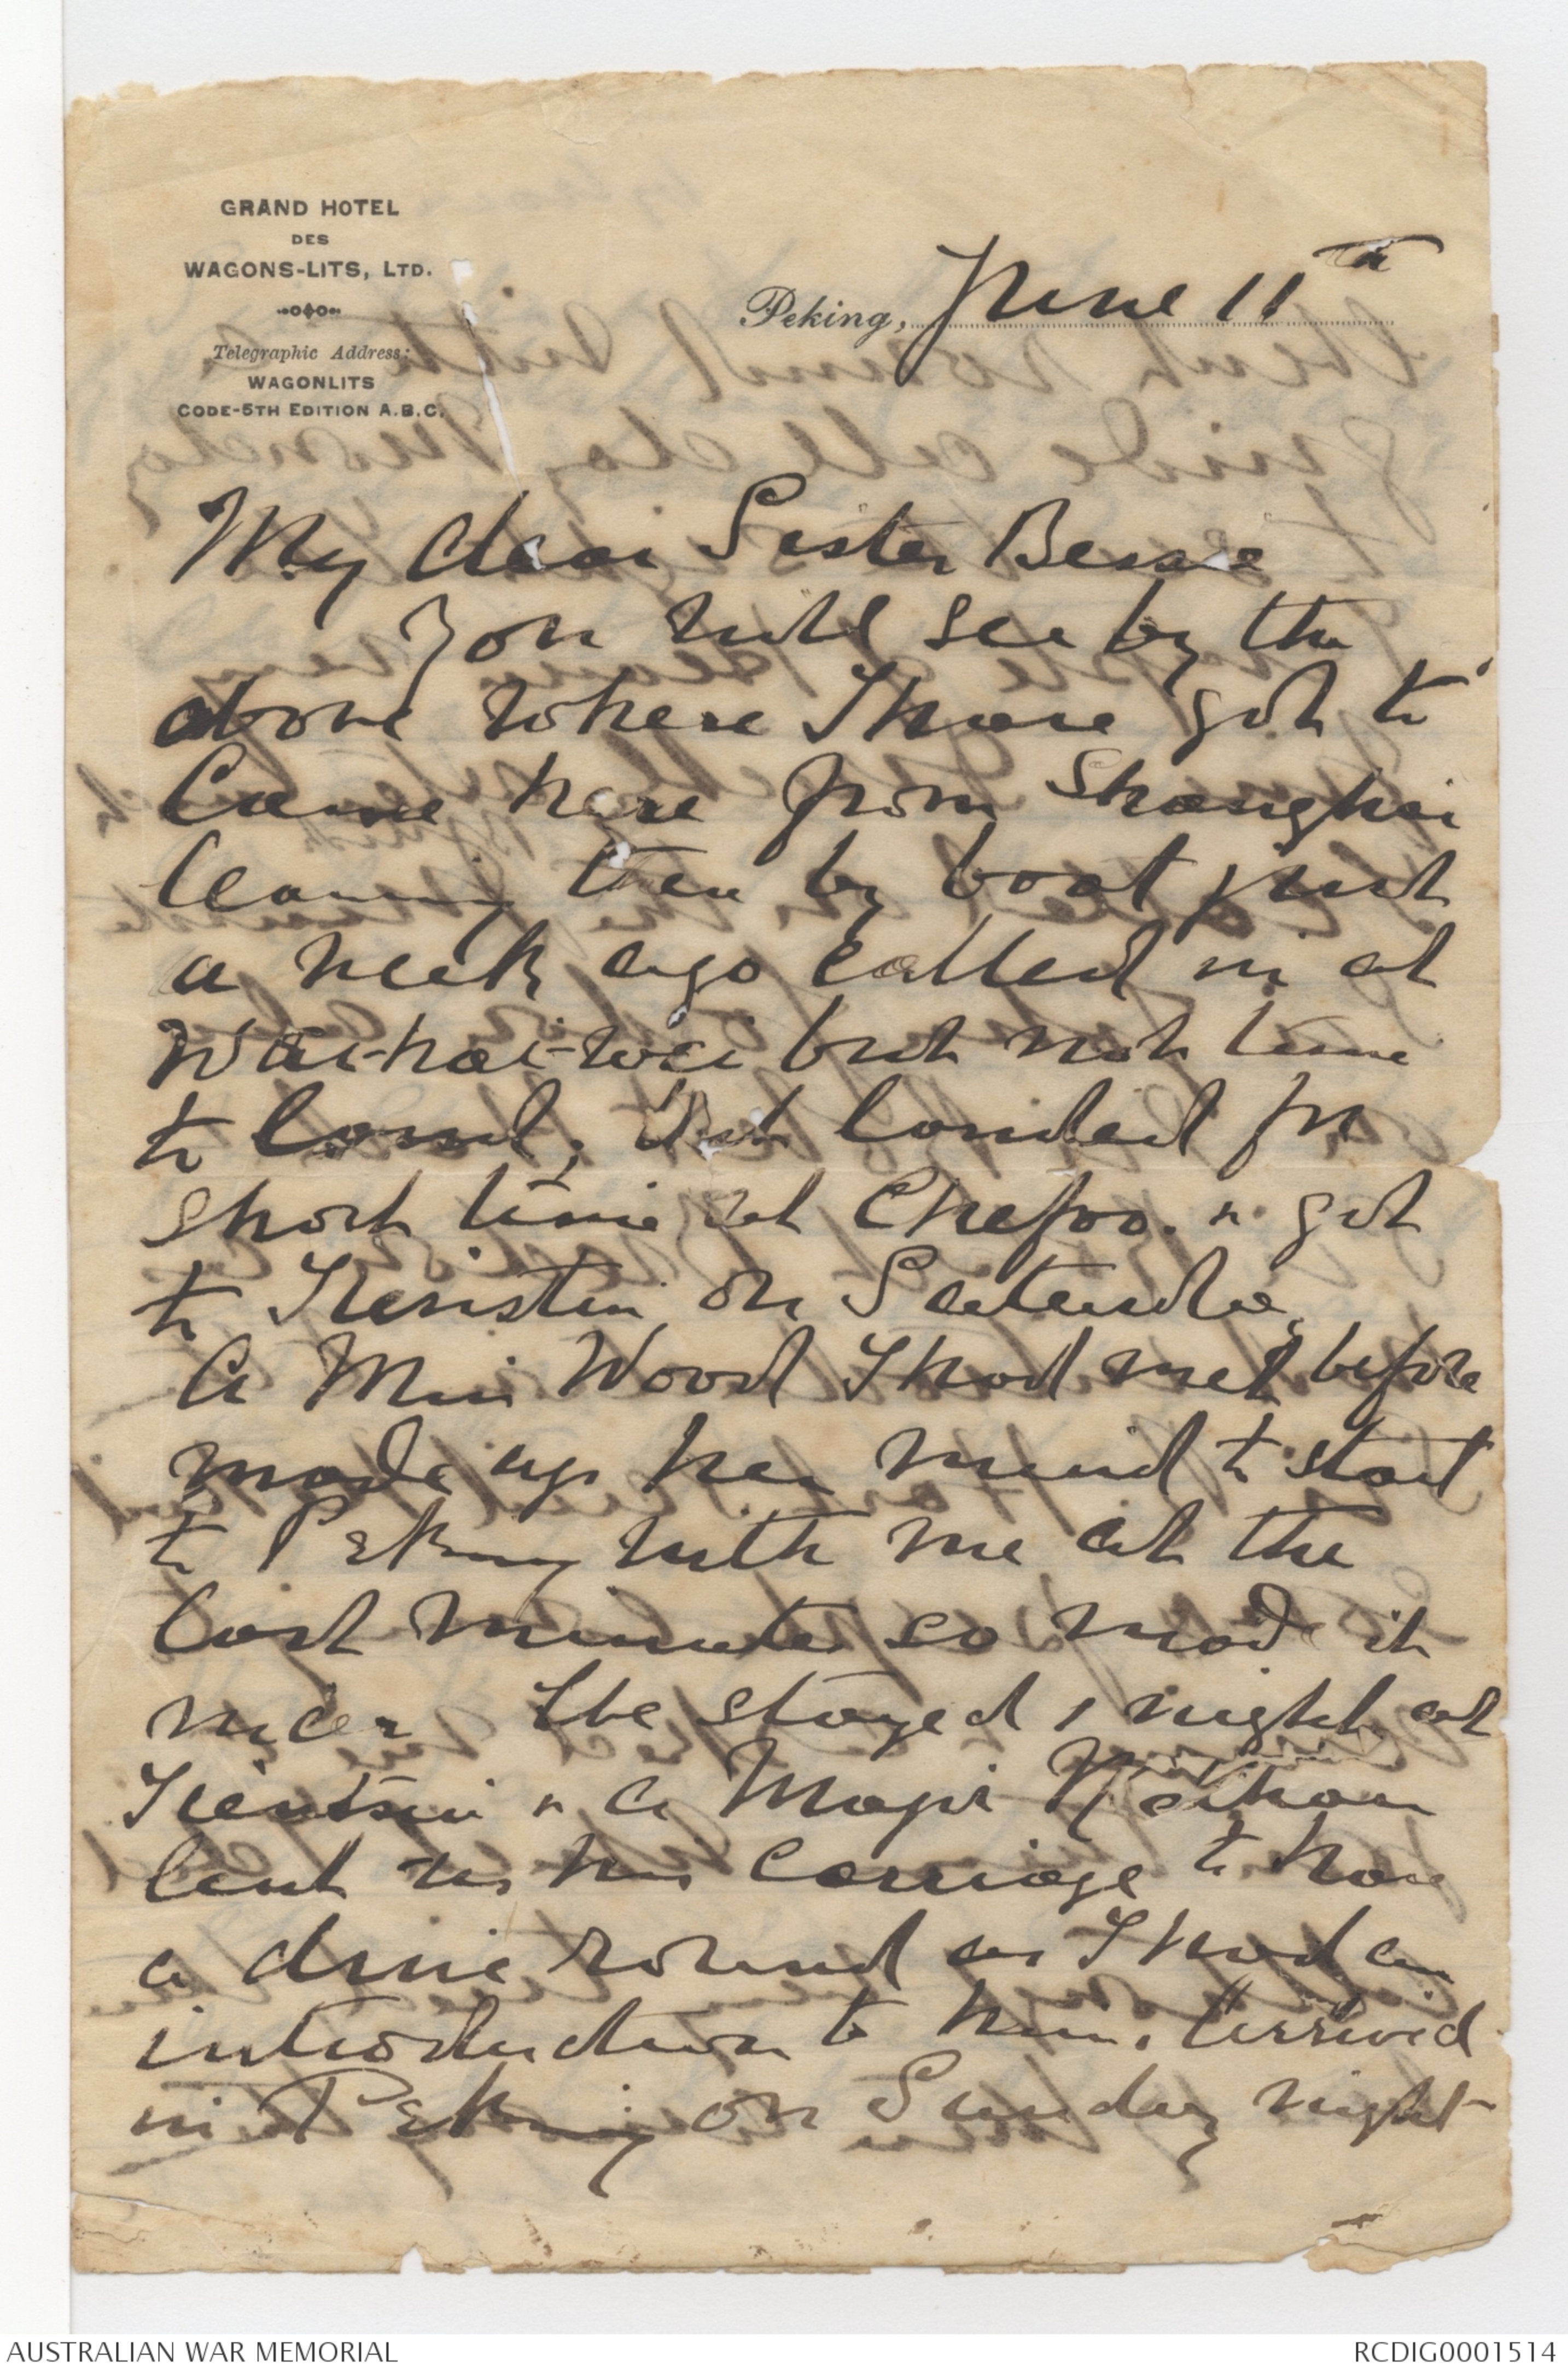 GRAND HOTEL
DES
WAGONS-LITS, LTD.
Telegraphic Address:
WAGONLITS
CODE-5TH EDITION A.B.C.
Peking, June 11th
My dear Sister Bessie
You will see by the
above where I have got to
Came here from Shanghai
leaving there by boat just
a week ago called in at
Wai-hai-wei but not time
to land, But landed for
short time at Chefoo. & got
to Tienstin on Saturday
A Miss Wood I had met before
made up her mind to start
to Peking with me at the
last minute so made it
nicer We stayed 1 night at
Tientsin & a Major Nathan
lent us his carriage to have
a drive round as I had an
introduction to him. Arrived
in Peking on Sunday night
AUSTRALIAN WAR MEMORIAL
RCDIG0001514